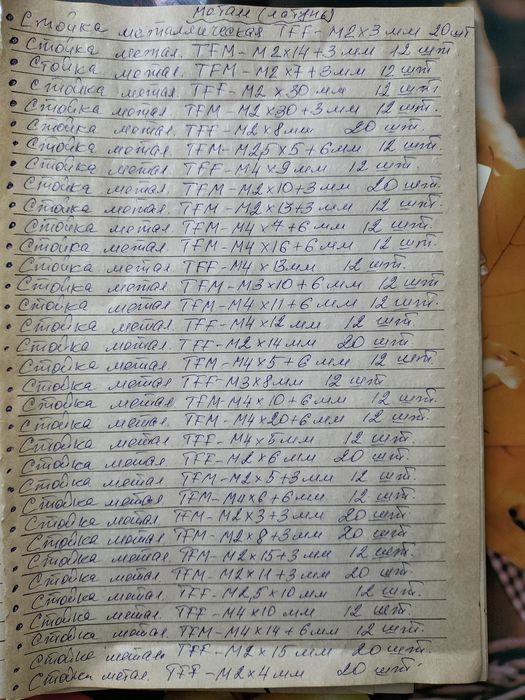 Метал (латунь)
Стойка металлическая TFF-M2x3мм 20шт
Стойка метал. TFM-M2x14+3мм 12 шт
Стойка метал. TFM-M2x7+3мм 12 шт
Стойка метал. TFF-M2x30мм 12 шт
Стойка метал. TFM-M2x30+3мм 12 шт.
Стойка метал. TFF-M2x8мм 20 шт.
Стойка метал. TFM-M2,5x5+6мм 12 шт.
Стойка метал. TFF-M4x9мм 12 шт.
Стойка метал. TFM-M2x10+3мм 20 шт.
Стойка метал. TFM-M2x13+3мм 12 шт.
Стойка метал. TFM-M4x4+6мм 12 шт.
Стойка метал. TFM-M4x16+6мм 12 шт.
Стойка метал. TFF-M4x13мм 12 шт.
Стойка метал. TFM-M3x10+6мм 12 шт
Стойка метал. TFM-M4x11+6мм 12 шт.
Стойка метал. TFF-M4x12мм 12 шт.
Стойка метал. TFF-M2x14мм 20 шт.
Стойка метал. TFM-M4x5+6мм 12 шт.
Стойка метал TFF-M3x8мм 12 шт
Стойка метал. TFM-M4x10+6мм 12 шт.
Стойка метал. TFM-M4x20+6мм 12 шт.
Стойка метал. TFF-M4x5мм 12 шт.
Стойка метал. TFF-M2x6мм 20 шт.
Стойка метал. TFM-M2x5+3мм 12 шт.
Стойка метал. TFM-M4x6+6мм 12 шт.
Стойка метал. TFM-M2x3+3мм 20 шт.
Стойка метал. TFM-M2x8+3мм 20 шт.
Стойка метал. TFM-M2x15+3мм 12 шт.
Стойка метал. TFM-M2x11+3мм 20 шт.
Стойка метал. TFF-M2,5x10мм 12 шт.
Стойка метал. TFF-M4x10мм 12 шт.
Стойка метал. TFM-M4x14+6мм 12 шт.
Стойка метал. TFF-M2x15мм 20 шт.
Стойка метал. TFF-M2x4мм 20 шт.